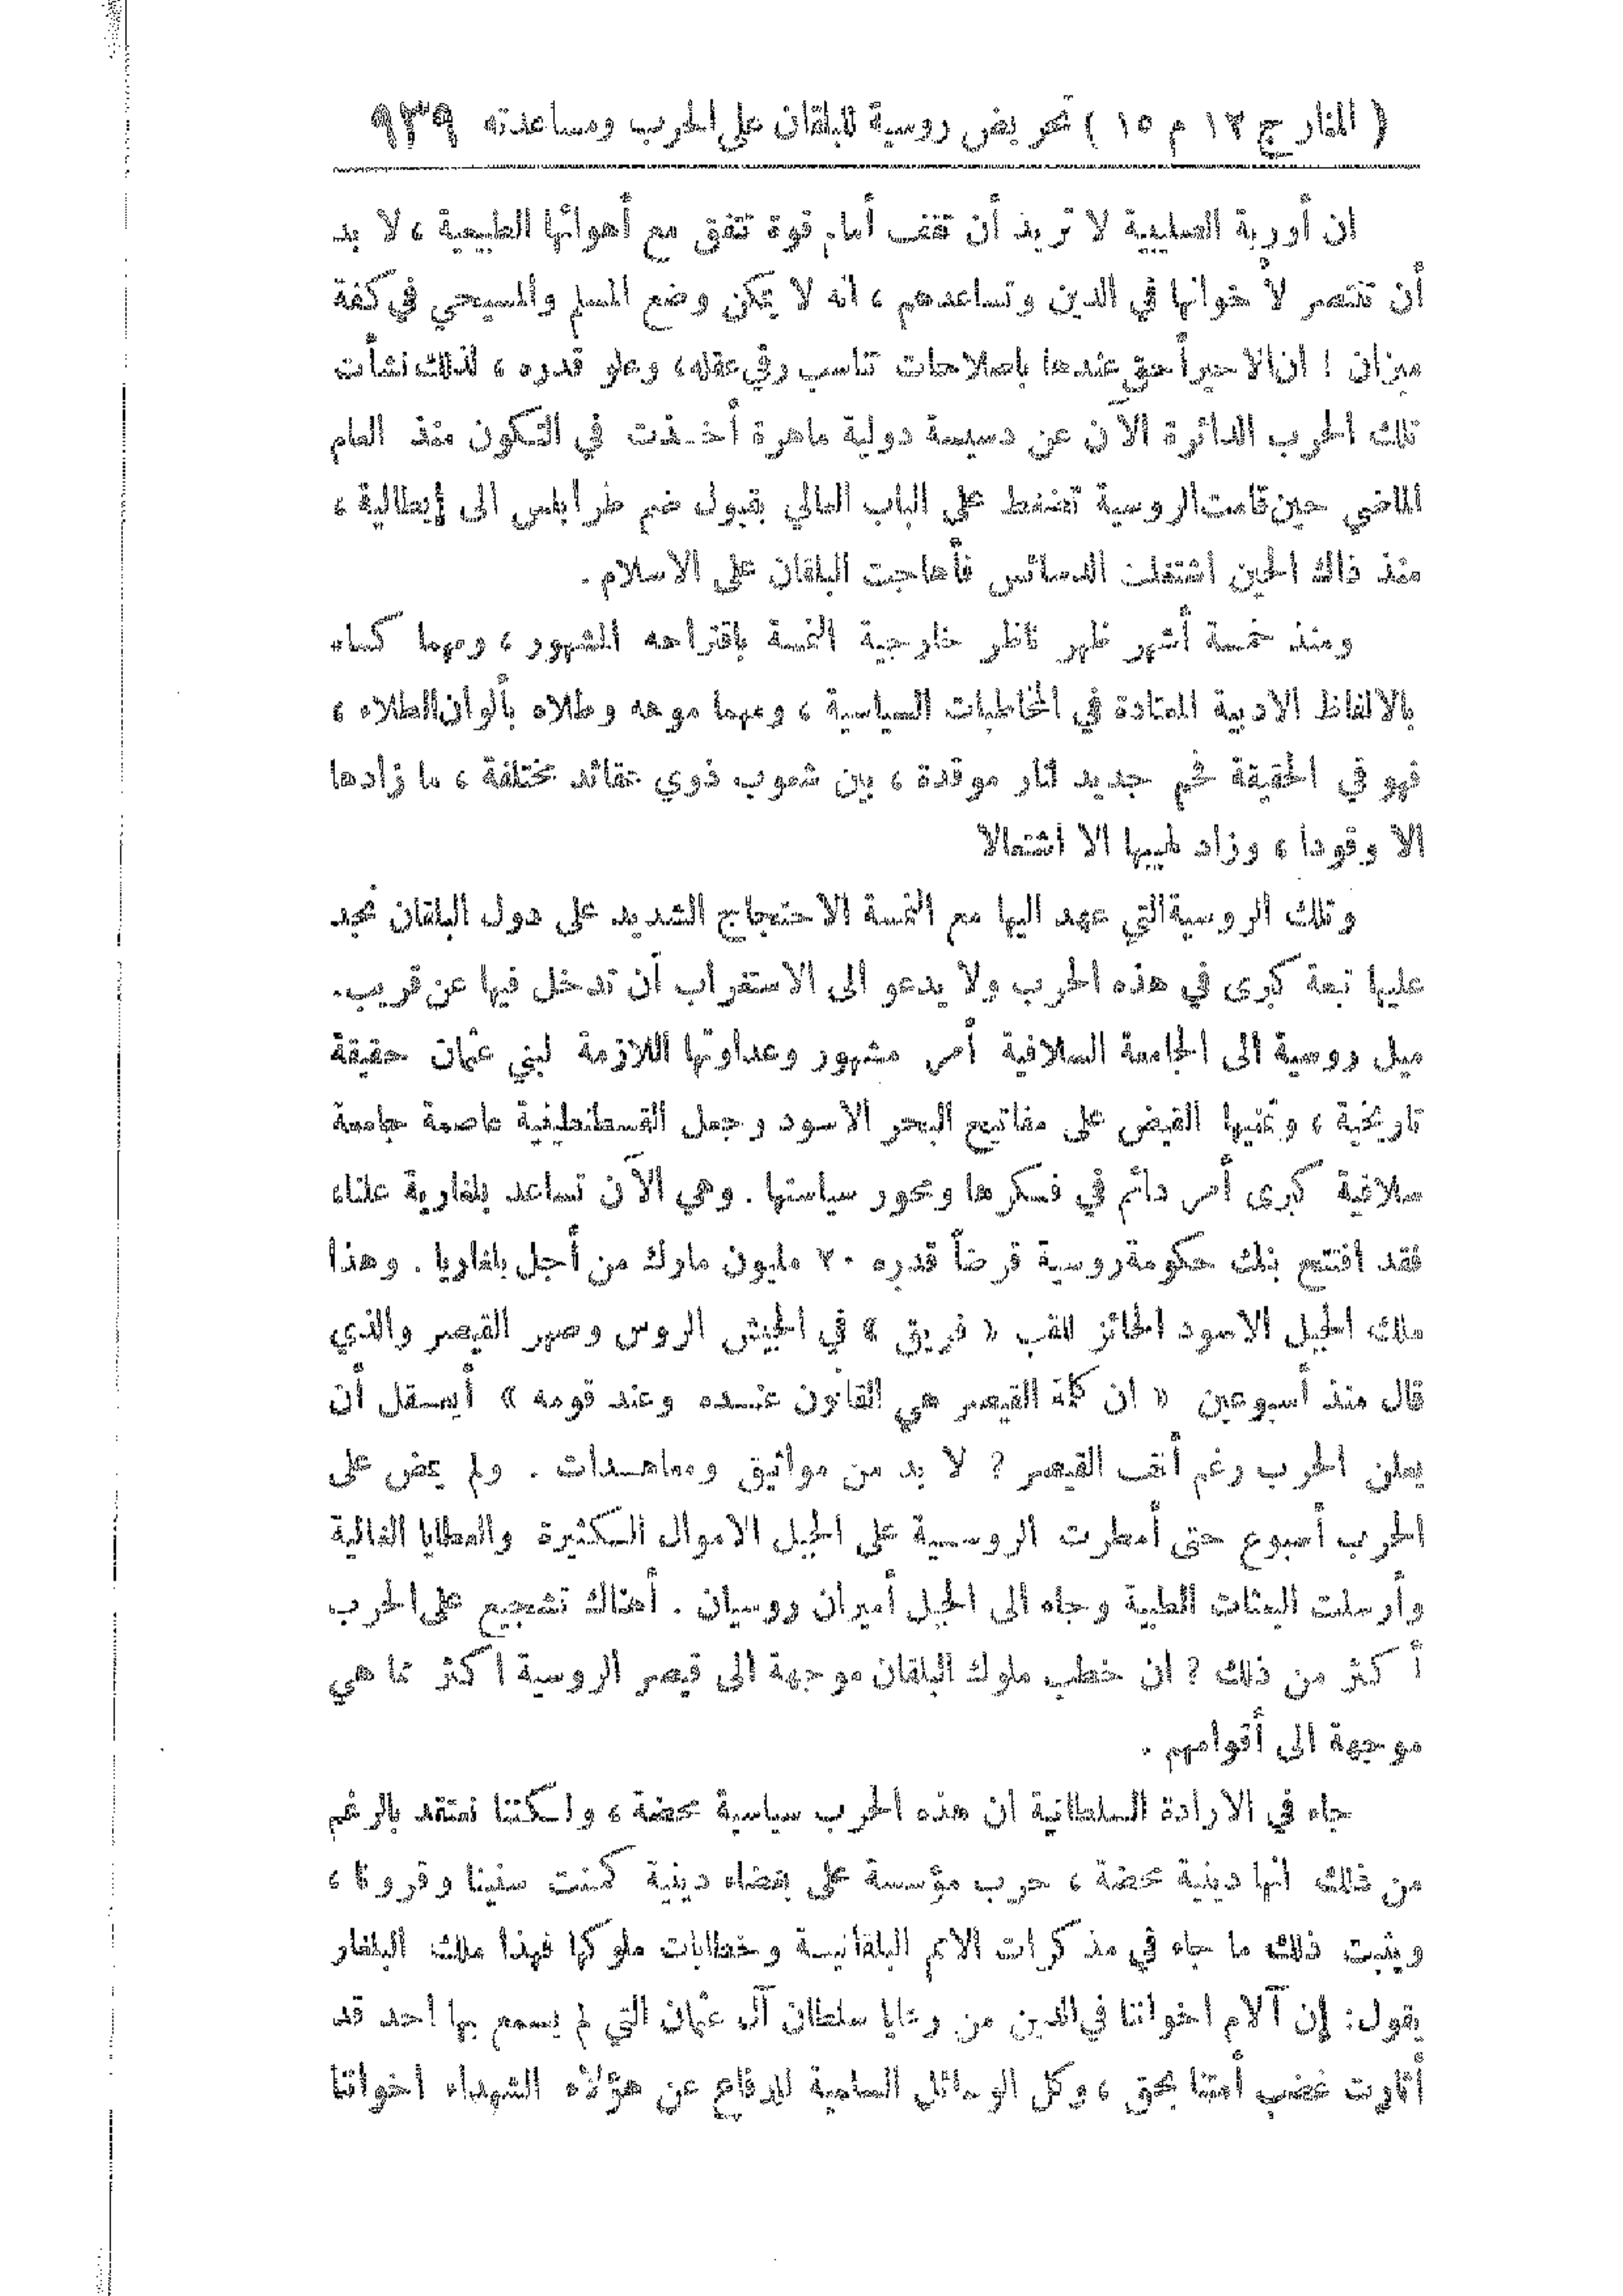 ( المنار ج ١٢ م ١٥ ) تحريض روسية للبلقان على الحرب ومساعدته ٩٣٩
ان أوربة الصليبية لا تريد أن تقف أمام قوة تتفق مع أهوائها الطبيعية ، لا بد
أن تنتصر لاخوانها في الدين وتساعدهم ، انه لا يمكن وضع المسلم والمسيحي في كفة
ميزان ! ان الاخير أحق عندها باصلاحات تناسب رقي عقله ، وعلو قدره ، لذلك نشأت
تلك الحرب الدائرة الآن عن دسيسة دولية ماهرة أخذت في التكون منذ العام
الماضي حين قامت الروسية تضغط على الباب العالي بقبول ضم طرابلس الى إيطالية ،
منذ ذاك الحين اشتغلت الدسائس فأهاجت البلقان على الاسلام .
ومنذ خمسة أشهر ظهر ناظر خارجية النمسة باقتراحه المشهور ، ومهما كساه
بالالفاظ الادبية المعتادة في المخاطبات السياسية ، ومهما موهه وطلاه بألوان الطلاء ،
فهو في الحقيقة فحم جديد لنار موقدة ، بين شعوب ذوي عقائد مختلفة ، ما زادها
الا وقودا ، وزاد لهيبها الا اشتعالا
وتلك الروسية التي عهد اليها مع النمسة الاحتجاج الشديد على دول البلقان نجد
عليها تبعة كبرى في هذه الحرب ولا يدعو الى الاستغراب أن تدخل فيها عن قريب.
ميل روسية الى الجامعة السلافية أمر مشهور وعداوتها اللازمة لبني عثمان حقيقة
تاريخية ، وتمنيها القبض على مفاتيح البحر الاسود وجعل القسطنطينية عاصمة جامعة
سلافية كبرى أمر دائم في فكرها ومحور سياستها . وهي الآن تساعد بلغارية علناء
فقد افتتح بنك حكومة روسية قرضاً قدره ٢٠ مليون مارك من أجل بلغاريا . وهذا
ملك الجبل الاسود الحائز للقب « فريق » في الجيش الروس وصهر القيصر والذي
قال منذ أسبوعين « ان كلمة القيصر هي القانون عنده وعند قومه » أيعقل أن
يعلن الحرب رغم أنف القيصر ? لا بد من مواثيق ومعاهدات . ولم يمض على
الحرب أسبوع حتى أمطرت الروسية على الجبل الاموال الكثيرة والعطايا الغالية
وأرسلت البعثات الطبية وجاء الى الجبل أميران روسيان . أهناك تشجيع على الحرب
أكثر من ذلك ? ان خطب ملوك البلقان موجهة الى قيصر الروسية اكثر مما هي
موجهة الى أقوامهم .
جاء في الارادة السلطانية ان هذه الحرب سياسية محضة ، ولكننا نعتقد بالرغم
من ذلك انها دينية محضة ، حرب مؤسسة على بغضاء دينية كمنت سنينا وقرونا ،
ويثبت ذلك ما جاء في مذكرات الامم البلقانية وخطابات ملوكها فهذا ملك البلغار
يقول: إن آلام اخواننا في الدين من رعايا سلطان آل عثمان التي لم يسمع بها احد قد
أثارت غضب أمتنا بحق ، وكل الوسائل السلمية للدفاع عن هؤلاء الشهداء اخواننا